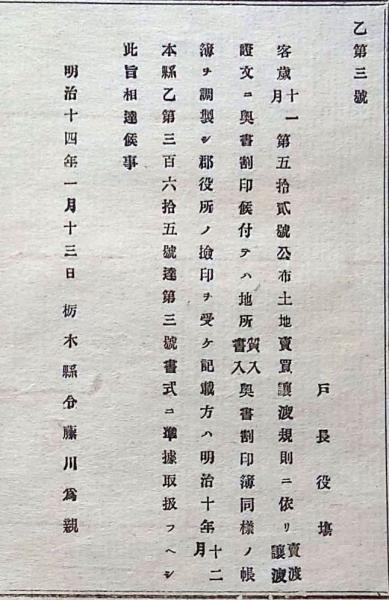 乙第三號
戸長役塲
客歳十一月第五拾貳號公布土地賣買讓渡規則ニ依リ賣渡讓渡
證文ニ奧書割印候付テハ地所質入書入奧書割印簿同樣ノ帳
簿ヲ調製シ郡役所ノ撿印ヲ受ケ記載方ハ明治十年十二月
本縣乙第三百六拾五號達第三號書式ニ準據取扱フヘシ
此旨相達候事
明治十四年一月十三日 栃木縣令藤川爲親